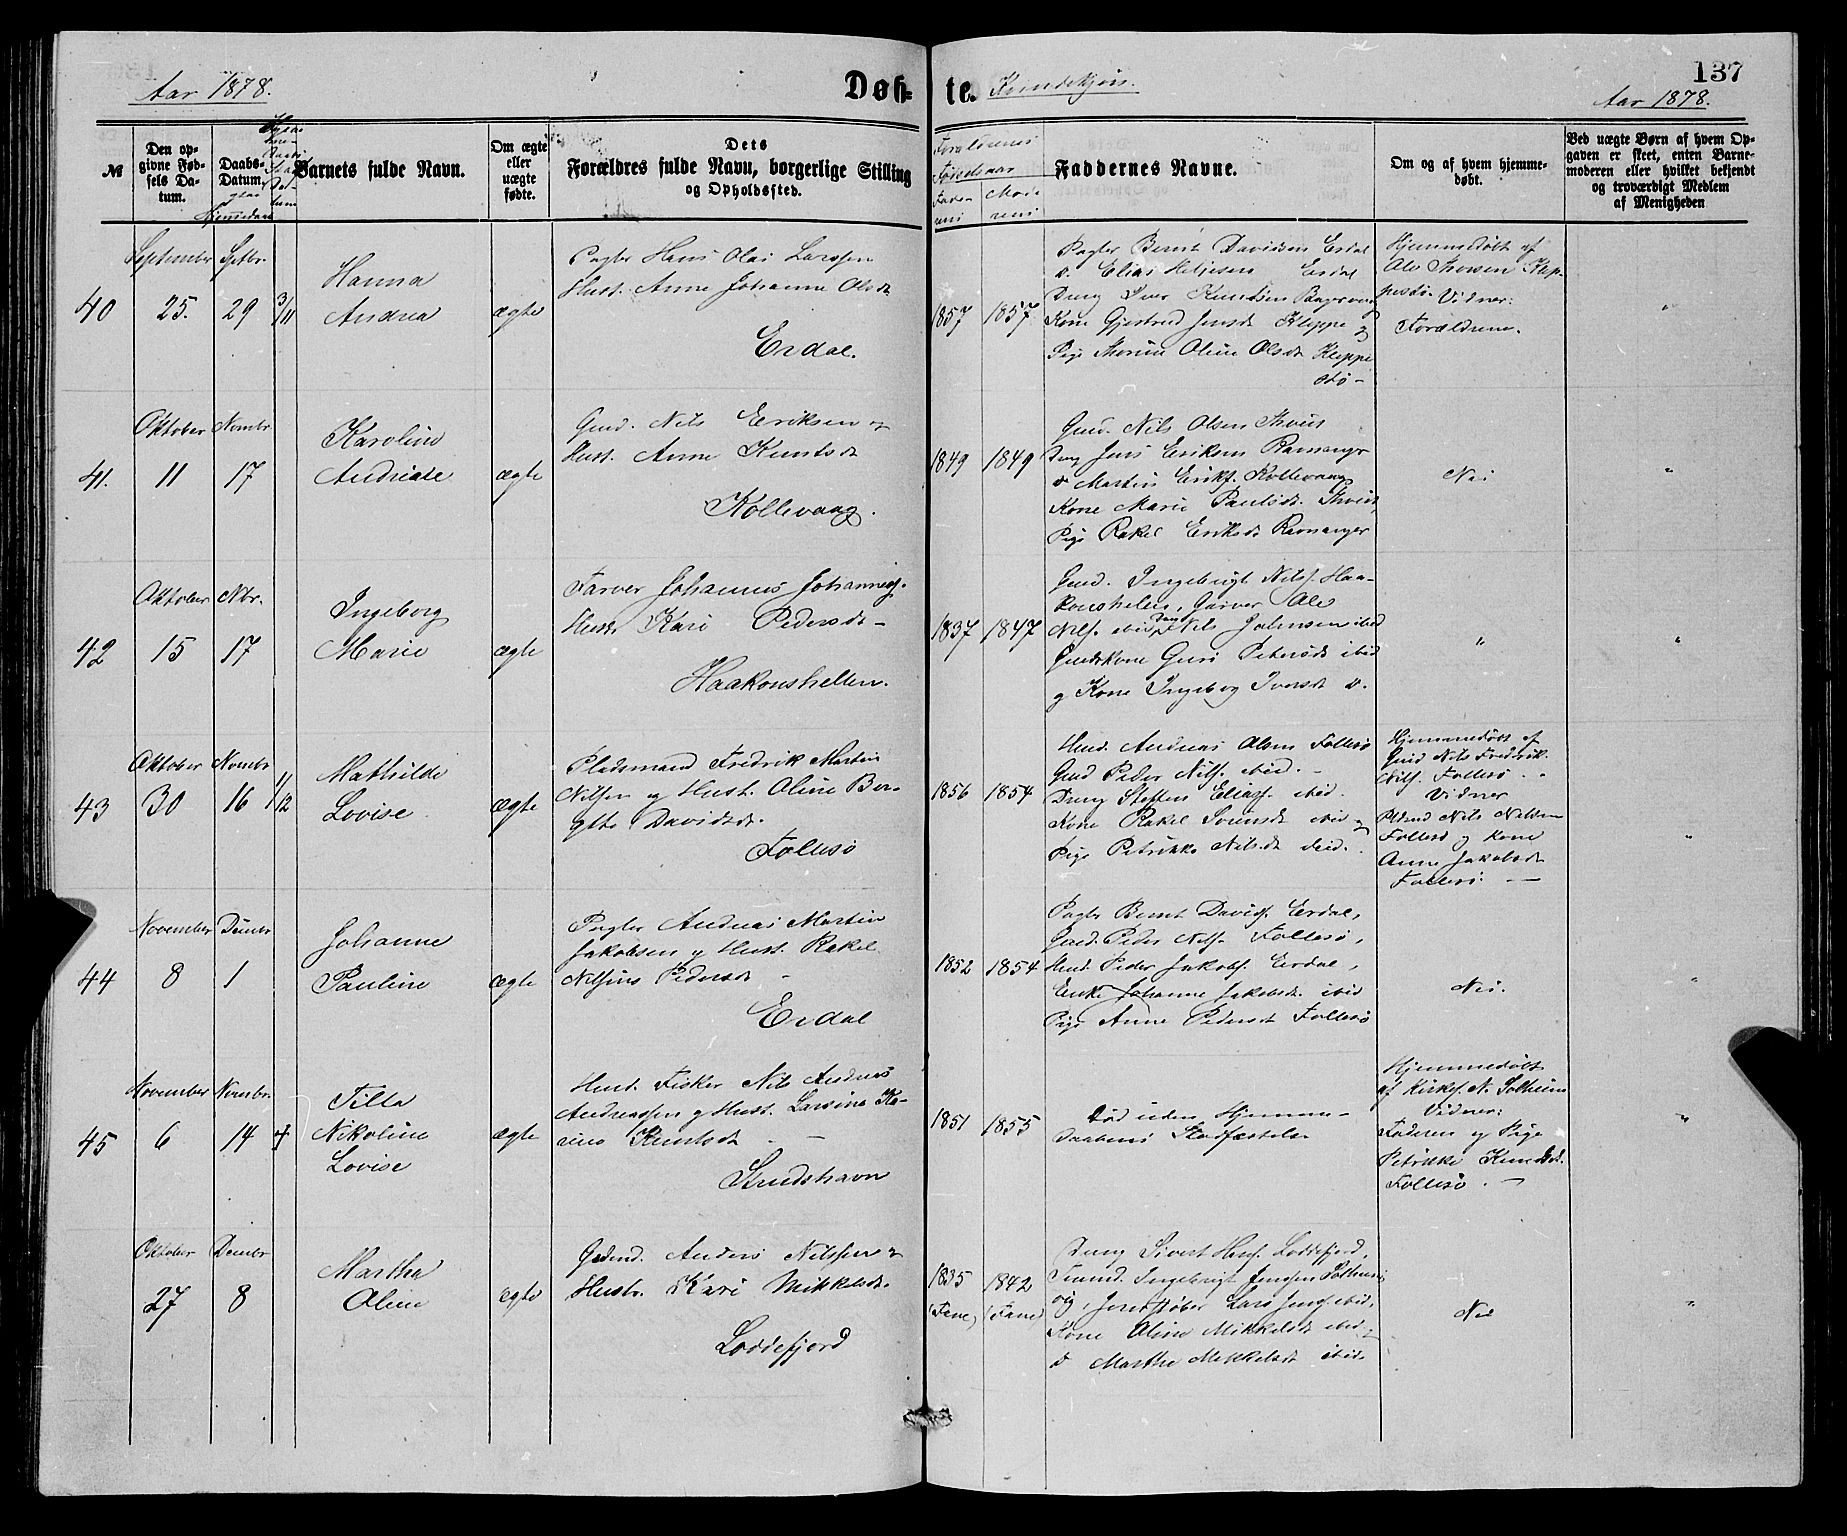 137
Aar 1878.
Døb-
te.
Kvindekjøn.
Aar 1878.
№
Den op-
givne Fød-
sels Da-
tum.
Daabs-
Datum.
Barnets fulde Navn.
Om ægte
eller
uægte
fødte.
Dets
Forældres fulde Navn, borgerlige Stilling
og Opholdssted.
Forældrenes
Fødselsaar
Fade-
rens
Mode
rens
Faddernes Navne.
Om og af hvem hjemme-
døbt.
Ved uægte Børn af hvem Op-
gaven er skeet, enten Barne-
moderen eller hvilket bekjendt
og troværdigt Medlem
af Menigheden
40
September
25.
Septbr.
29
3/11
Hanna
Andrea
ægte
Pagter Hans Olai Larssen
Hust. Anne Johanne Olsdt
Erdal.
1857
1857
Pagter Bernt Davidsen Erdal
Elias Erdal
Dreng Iver Knudsen
Kone Gjertrud Jensdt Kleppe og
Pige Thorine Oline Olsdt Kleppe
stø -
Hjemmedøbt af
Ale Thorsen Klep
pestø. Vidner:
Forældrene.
"
41.
Oktober
11
Novembr.
17
Karoline
Andrea
ægte
Gmd. Nils Eriksen og
Hust. Anne Knutsdt
Kollevaag.
1849
1849
Gmd. Nils Olsen
Dreng Jens Eriksen Ravnanger
do Martin Eriks. Kollevaag
Kone Marie Paulsdt.
Pige Rakel Eriksdt Ravnanger
Nei
"
42
Oktober
15
Nbr.
17
Ingeborg
Marie
ægte
Farver Johannes Johanness.
Hustr Kari Pedersdt -
Haakonshellen.
1837
1847
Gmd. Ingebrigt Nils. Haa-
konshellen, Garver Ole
Nils. ibid Dreng Nils Johnsen ibid
Gmdskone Guri Petersdt ibid
og Kone Ingeborg Iversdt do.
"
"
43
Oktober
30
Novembr
16
1/12
Mathilde
Lovise
ægte
Pladsmand Fredrik Martin
Nilsen og Hust. Oline Ber-
gitte Davidsdt.
Follesø
1856
1854
Hmd. Andreas Olsen Follesø
Gmd Peder Nils. ibid. -
Dreng Steffen Elias. ibid.
Kone Rakel Sørensdt ibid og
Pige Petrikke Nilsdt ibid.
Hjemmedøbt af
Gmd Nils Fredrik
Nils. Follesø.
Vidner
Pldsmd Nils Nilsen
Follesø og Kone
Anne Jakobsdt
Follesø. -
"
44
November
8
Dcembr
1
Johanne
Pauline
ægte
Pagter Andreas Martin
Jakobsen og Hust. Rakel
Nilsine Pedersdt -
Erdal
1852
1854
Pagter Bernt Davids. Erdal,
Gmd. Peder Nils. Follesø,
Hmd. Peder Jakobs. Erdal,
Enke Johanne Jakobsdt. ibid
Pige Anne Pedersdt Follesø
Nei.
"
45
November
6
Novembr.
14
Tilla
Nikoline
Lovise
ægte
Hmd. Fisker Nils Andreas
Andreassen og Hust. Larsine Ka-
rine Knutsdt. -
Strudshavn
1851
1855
Død uden Hjemme-
daabens Stadfæstelse
Hjemmedøbt
af Kirkes. N. Solheim
Vidner:
Faderen og Pige
Petrikke Knudsdt.
Follesø. -
"
Oktober
27
Dcembr
8
Martha
Oline
ægte
Gmd. Anders Nilssen og
Hustr. Kari Mikkelsdt.
Loddefjord
1835
(Fane)
1842
(Fane)
Dreng Sivert Hans. Loddefjord,
Ingebrigt Jenssen
Lars Jens. ibid,
Kone Oline Mikkelsdt ibid og
do Marthe Mikkelsdt ibid.
Nei
"